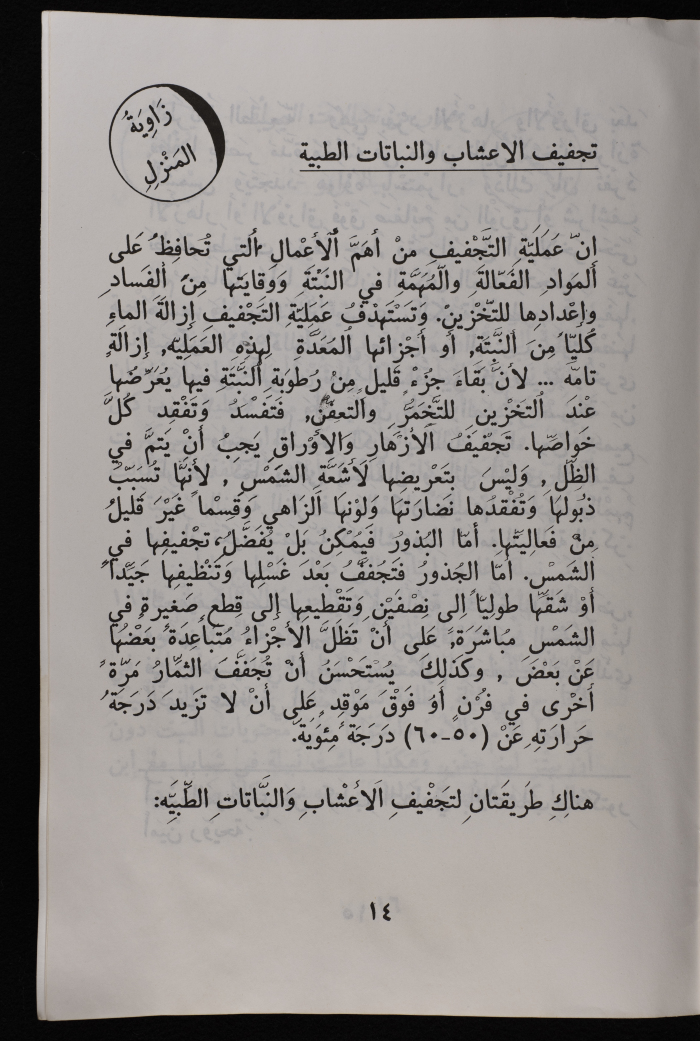 زَاوِيَةُ
المَنْزِلِ
تجفيف الاعشاب والنباتات الطبية
إنّ عَمَليّة التَّجْفيفِ منْ أهَمّ الأعْمالِ اُلَتي تُحافِظُ عَلى
المَوادِ الفَعّالةِ والمُهِمَّةِ في النَبْتَةِ وَوِقايَتِها مِنَ الفَسادِ
وإعْدادِها للتّخْزينِ. وَتَسْتَهْدِفُ عَمَليّةِ التَجْفيفِ إزالَةَ الماءِ
كُليّاً مِنَ النَبْتَة, أو أجْزائها المُعَدَّةِ لِهذِهِ العَمَليّه, إزالَةً
تامّه ... لأنَّ بَقاءَ جزُءْ قَليلٍ مِنُ رُطوبَةِ النَبْتَةِ فيها يُعَرّضُها
عْنَد التَخْزينِ للتَّخَمُّرِ والتعفّنْ, فَتَفْسُدُ وَتَفْقِد كُلَّ
خَواصّها. تَجْفيفُ الأزْهارِ والأوْراقِ يَجِبُ أنْ يَتمَّ في
الظِلّ , وَليْسَ بتَعْريضِها لأشعّةِ الشمَسْ , لأنهَّا تُسَبّبُ
ذبُولهَا وَتُفْقدُها نَضارَتهَا وَلوْنهَا الزاهي وَقِسْماً غَيْرَ قَليلُ
مِنْ فَعاليّتها. أمّا البُذورُ فَيُمْكِنُ بَلْ يُفَضّلُ، تجْفيفِها في
الشَمسْ. أمّا الجُذورُ فَتَجُففَّ بَعْدَ غَسْلِها وَتَنْظيفِها جَيّداً
أوْ شَقّها طولِيّاً إلى نِصْفَيْنِ وَتَقْطيعِها إلى قِطعٍ صَغيرةٍ في
الشَمْسِ مُباشَرَة, عَلى أنْ تظَلّ الأجْزاءُ مُتباعِدَة بَعْضُها
عَنْ بَعْضَ , وكَذلِكَ يُسْتَحْسَنُ أنْ تُجَفّفَ الثمّارُ مَرّةً
أخْرى في فرُنٍ أوُ فَوْقَ مَوْقدٍ عَلى أنْ لا تَزيدَ دَرَجَةُ
حَرارَتهِ عَنْ (٥٠-٦٠) دَرَجَة مئوَيّة.
هناكِ طَريقَتانِ لتَجْفيفِ الأعْشابِ وَالنَّباتاتِ الطّبيّه:
١٤